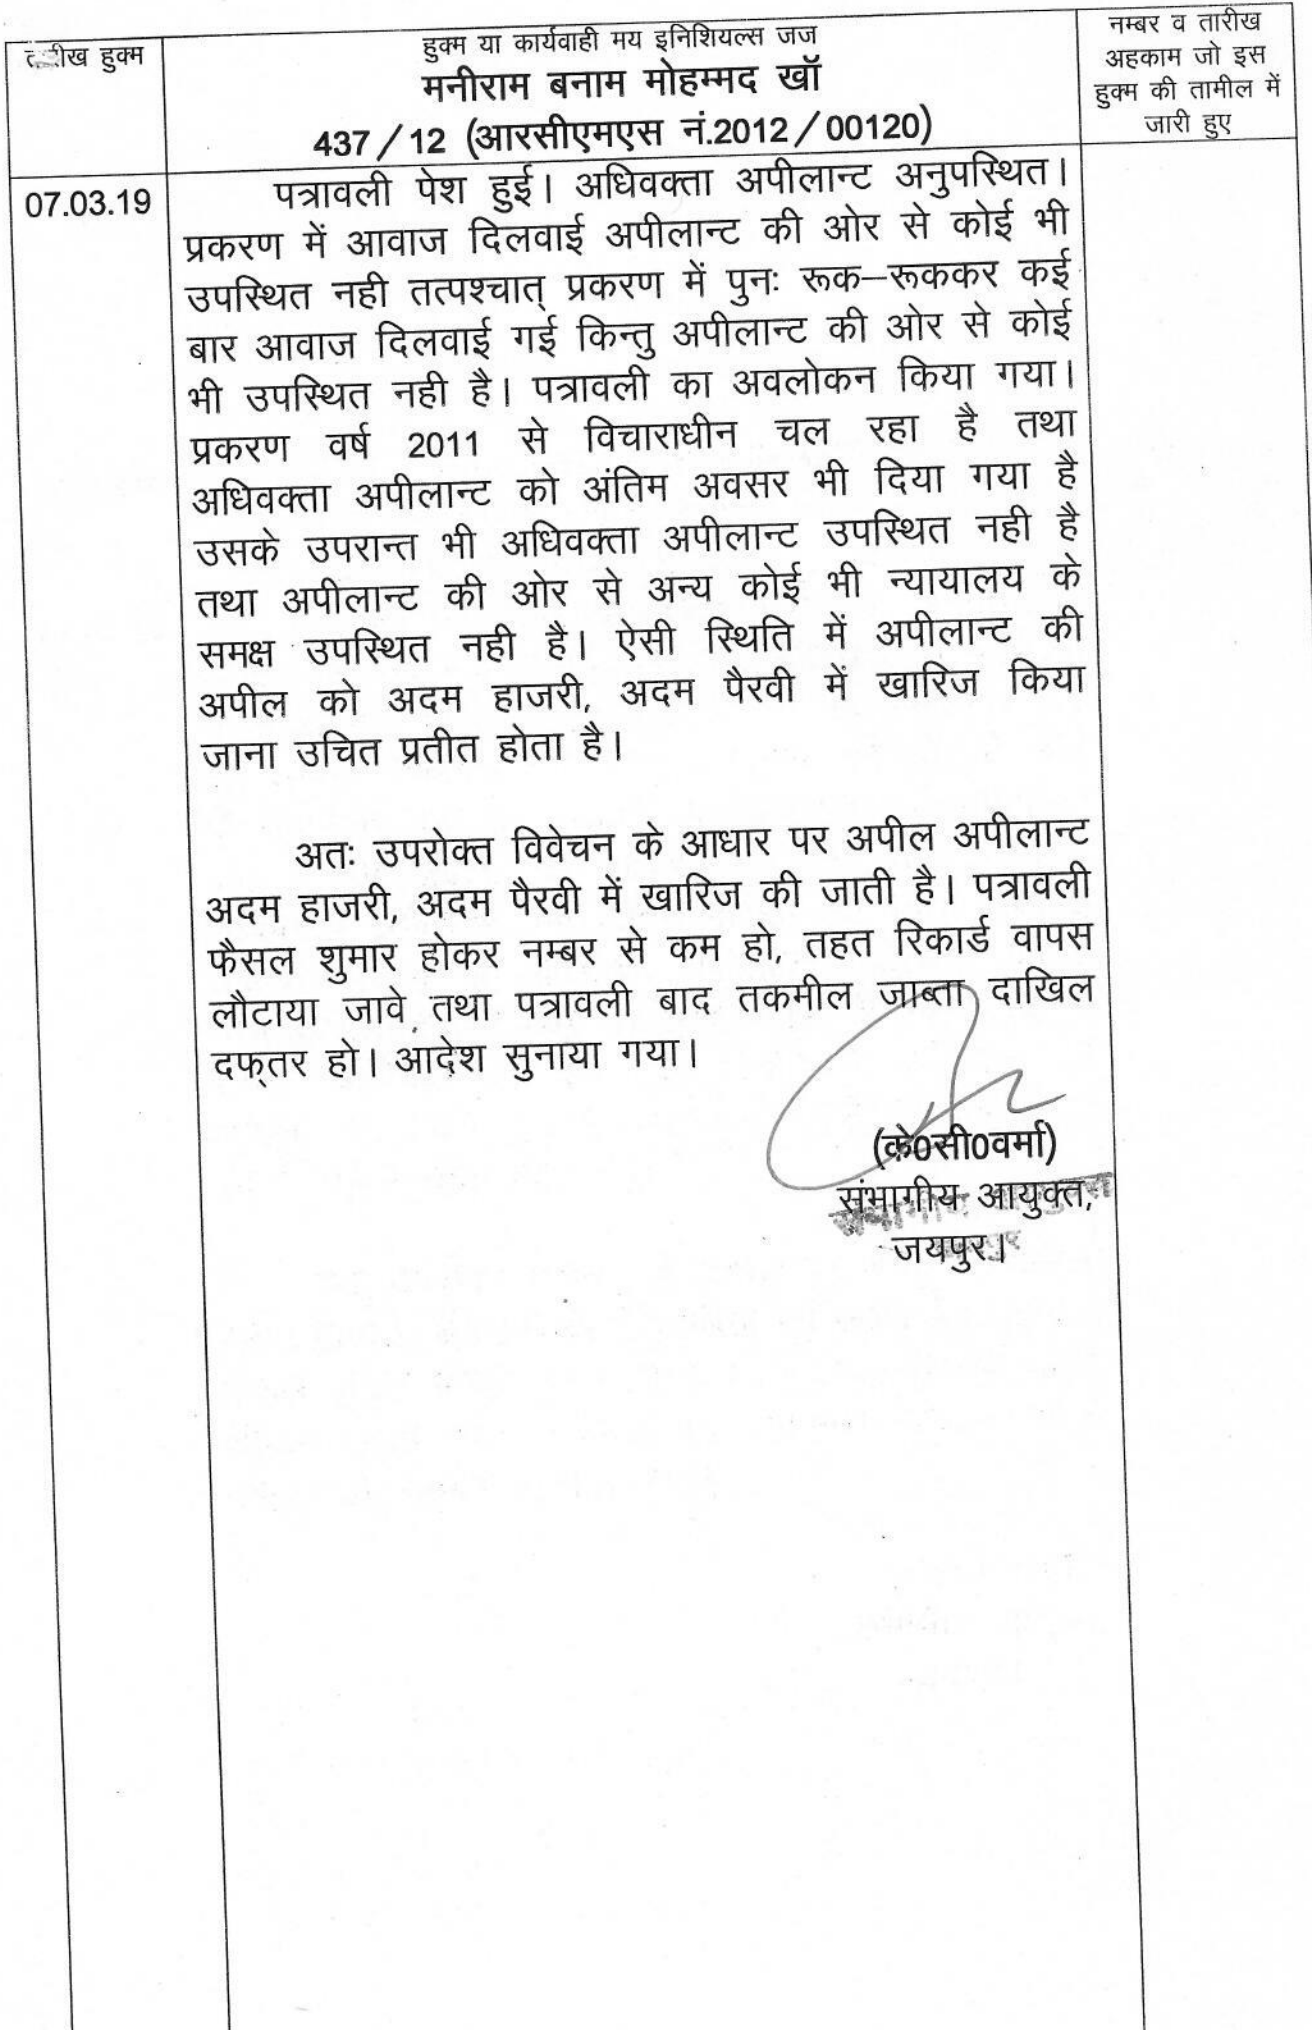 हुक्म
हुक्म या कार्यवाही मय इनिशियल्स जज
मनीराम बनाम मोहम्मद खॉ
437/12 (आरसीएमएस नं.2012/00120)
नम्बर व तारीख
अहकाम जो इस
हुक्म की तामील में
जारी हुए
07.03.19
पत्रावली पेश हुई। अधिवक्ता अपीलान्ट अनुपस्थित।
प्रकरण में आवाज दिलवाई अपीलान्ट की ओर से कोई भी
उपस्थित नही तत्पश्चात् प्रकरण में पुनः रूक–रूककर कई
बार आवाज दिलवाई गई किन्तु अपीलान्ट की ओर से कोई
भी उपस्थित नही है। पत्रावली का अवलोकन किया गया।
प्रकरण वर्ष 2011 से विचाराधीन चल रहा है तथा
अधिवक्ता अपीलान्ट को अंतिम अवसर भी दिया गया है
उसके उपरान्त भी अधिवक्ता अपीलान्ट उपस्थित नही है
तथा अपीलान्ट की ओर से अन्य कोई भी न्यायालय के
समक्ष उपस्थित नही है। ऐसी स्थिति में अपीलान्ट की
अपील को अदम हाजरी, अदम पैरवी में खारिज किया
जाना उचित प्रतीत होता है।
अतः उपरोक्त विवेचन के आधार पर अपील अपीलान्ट
अदम हाजरी, अदम पैरवी में खारिज की जाती है। पत्रावली
फैसल शुमार होकर नम्बर से कम हो, तहत रिकार्ड वापस
लौटाया जावे तथा पत्रावली बाद तकमील जाब्ता दाखिल
दफ्तर हो। आदेश सुनाया गया।
(के0सी0वर्मा)
संभागीय आयुक्त,
जयपुर।